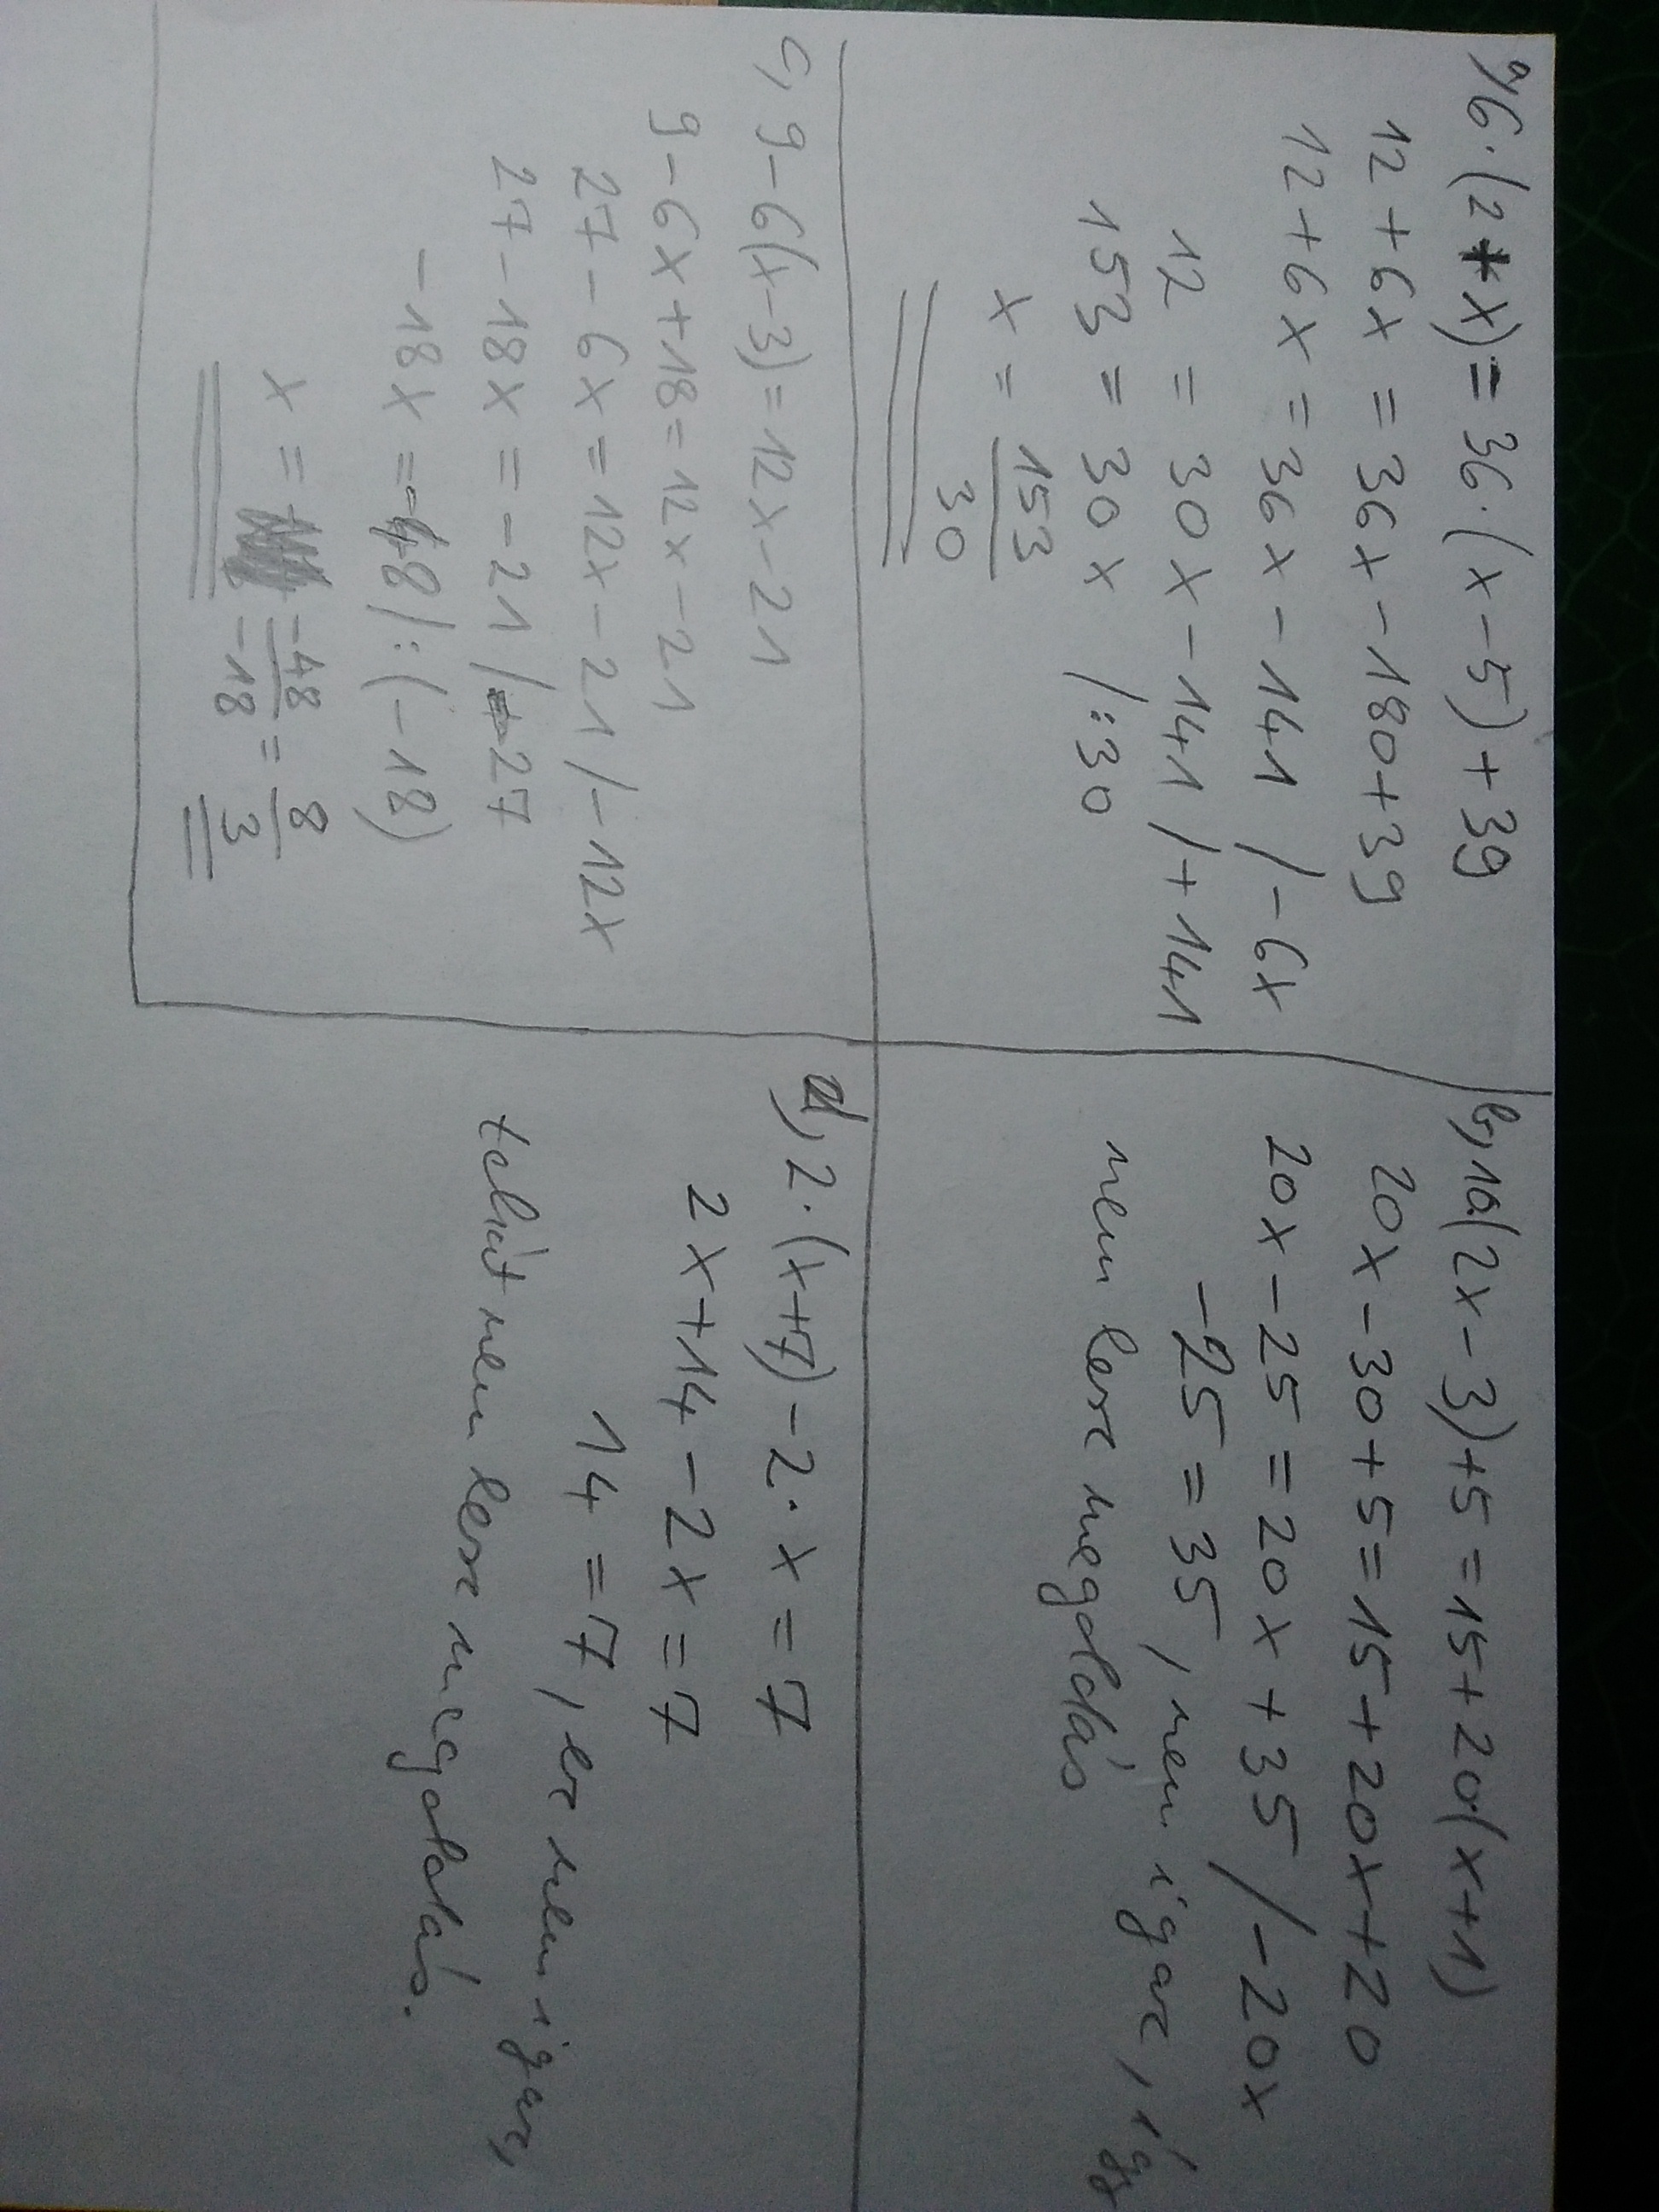 a, 6·(2+x)=36·(x-5)+39
12+6x=36x-180+39
12+6x=36x-141 /-6x
12=30x-141 /+141
153=30x /:30
x=153/30
b, 10·(2x-3)+5=15+20·(x+1)
20x-30+5=15+20x+20
20x-25=20x+35 /-20x
-25=35, nem igaz, így
nem lesz megoldás
c, 9-6(x-3)=12x-21
9-6x+18=12x-21
27-6x=12x-21 /-12x
27-18x=-21 /-27
-18x=-48 /:(-18)
x=-48/-18=8/3
d, 2·(x+7)-2·x=7
2x+14-2x=7
14=7, ez nem igaz,
tehát nem lesz megoldás.